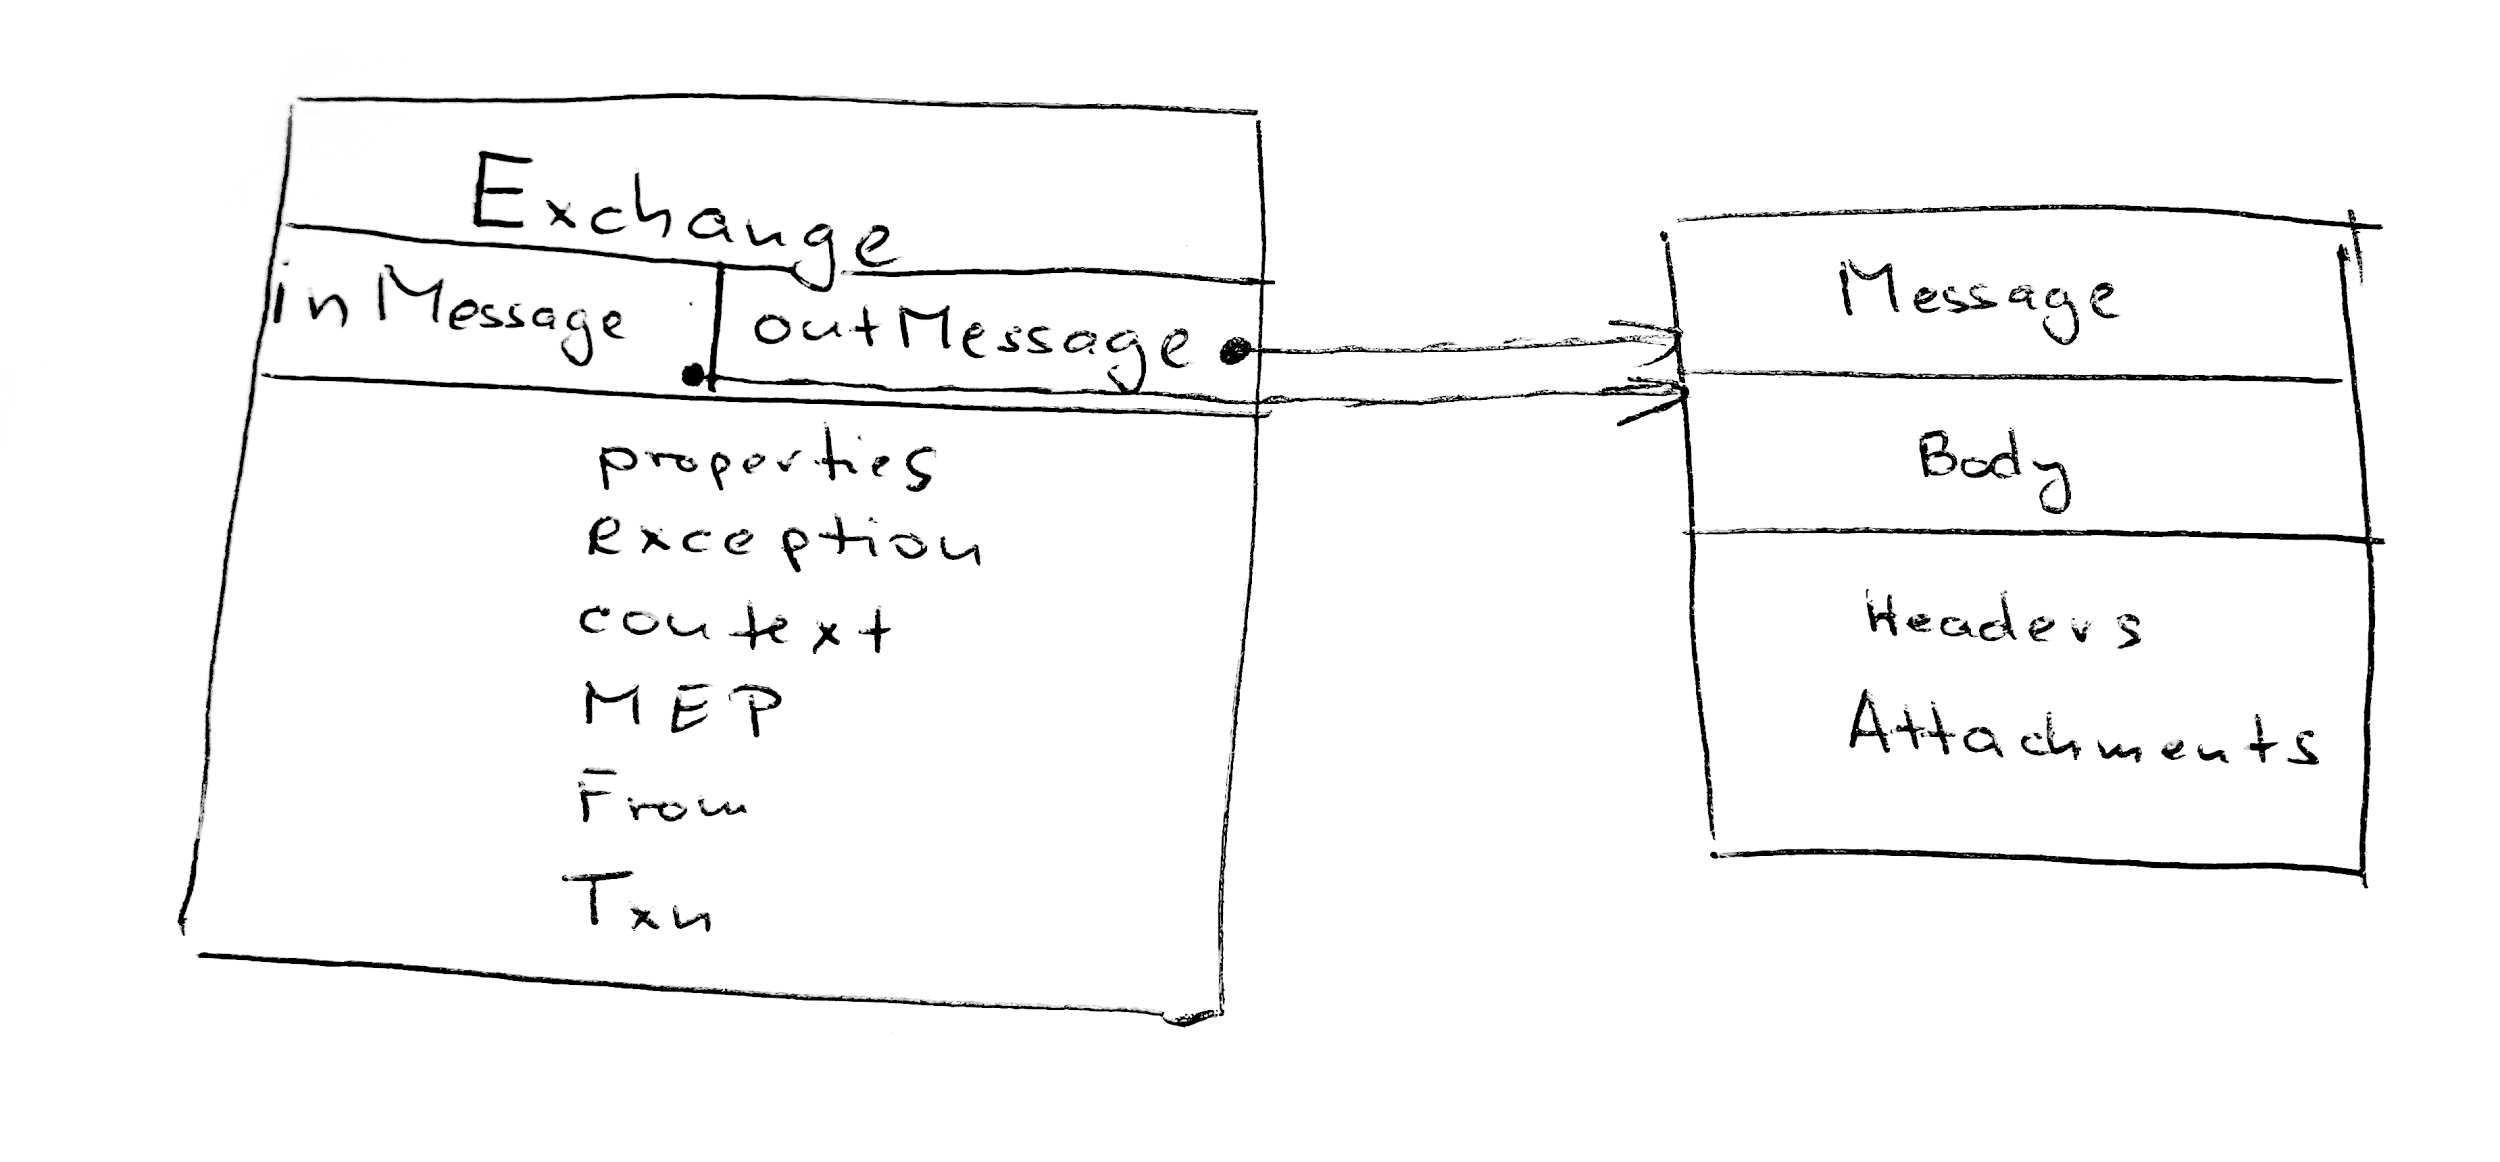 Exchange
inMessage outMessage
properties
exception
context
MEP
From
Txn
Message
Body
Headers
Attachments